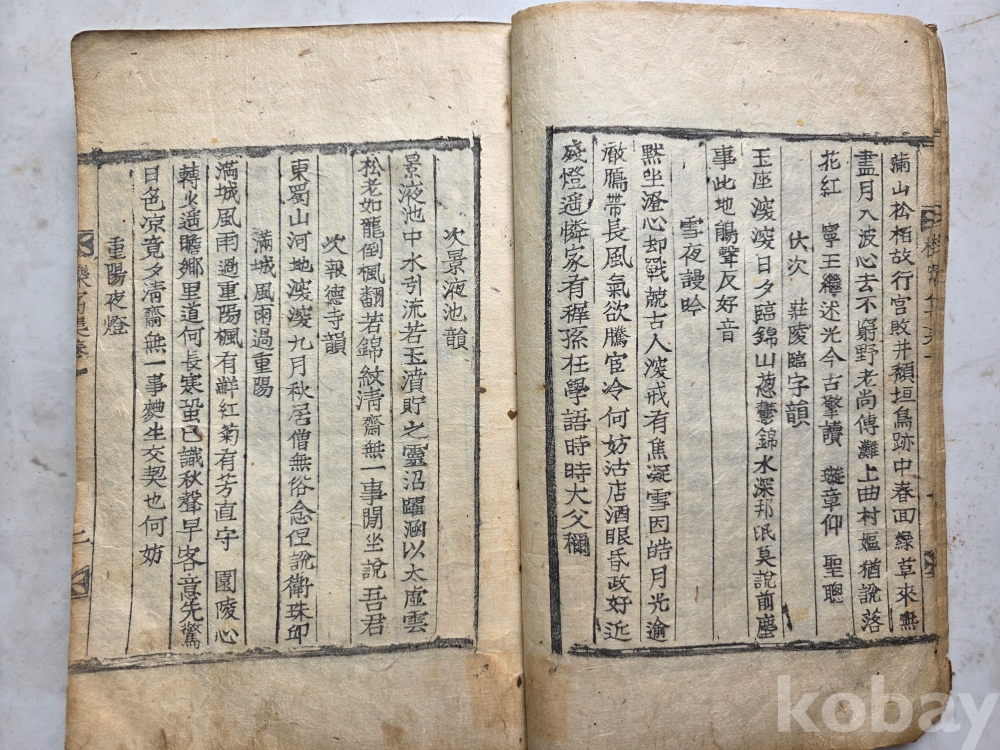 滿山松栢故行宮敗井頹垣鳥跡中春面綠草來無
盡月入波心去不窮野老尚傳灘上曲村嫗猶說落
花紅 寧王繼述光今古擎讀 璇章仰 聖聰
伏次 莊陵臨字韻
玉座深深日夕臨錦山葱鬱錦水深邦氓莫說前塵
事此地鵑聲反好音
雪夜謾吟
默坐澄心却戰兢古人深戒有焦凝雪因皓月光逾
澈鴈帶長風氣欲騰宦冷何妨沽店酒眼昏政好近
殘燈遥憐家有穉孫在學語時時大父稱
次景液池韻
景液池中水引流若玉瀆貯之靈沼躍涵以太虛雲
松老如龍倒楓翻若錦紋清齋無一事閒坐說吾君
次報德寺韻
東蜀山河地深深九月秋居僧無俗念但說衛珠邱
滿城風雨過重陽
滿城風雨過重陽楓有鮮紅菊有芳直守 園陵心
轉火遥瞻鄉里道何長寒蛩已識秋聲早客意先驚
日色凉竟夕清齋無一事麴生交契也何妨
重陽夜燈
kobay